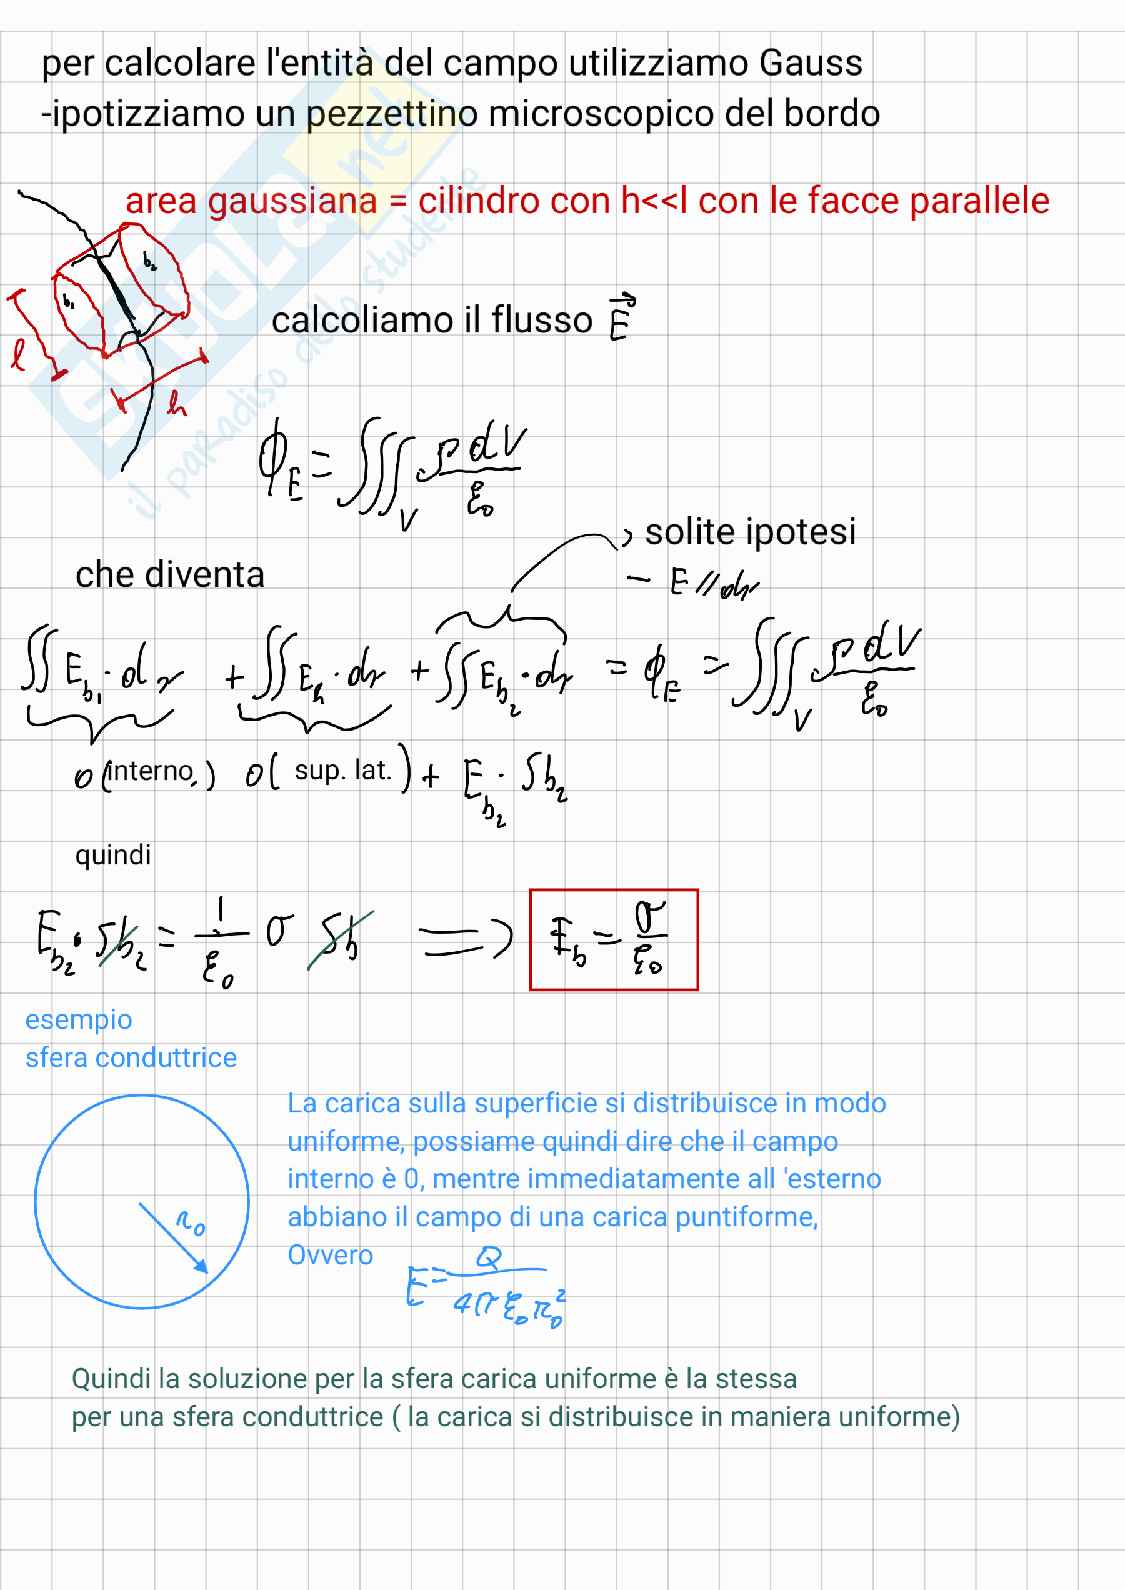 per calcolare l'entità del campo utilizziamo Gauss
-ipotizziamo un pezzettino microscopico del bordo
area gaussiana = cilindro con h<<l con le facce parallele
b₂
b₁
l
h
calcoliamo il flusso E⃗
ϕ_E = ∭_V ρdV/ε₀
solite ipotesi
che diventa
– E // dr
∬ E_b₁ · dr + ∬ E_h · dr + ∬ E_b₂ · dr = ϕ_E = ∭_V ρdV/ε₀
0 (interno,) 0 ( sup. lat. ) + E_b₂ · Sb₂
quindi
E_b₂ · Sb₂ = 1/ε₀ σ Sb ⟹ E_b = σ/ε₀
esempio
sfera conduttrice
La carica sulla superficie si distribuisce in modo
uniforme, possiame quindi dire che il campo
interno è 0, mentre immediatamente all 'esterno
abbiano il campo di una carica puntiforme,
Ovvero E = Q/4π ε₀ r₀²
r₀
Quindi la soluzione per la sfera carica uniforme è la stessa
per una sfera conduttrice ( la carica si distribuisce in maniera uniforme)
SKUOLA.net
il paradiso dello studente